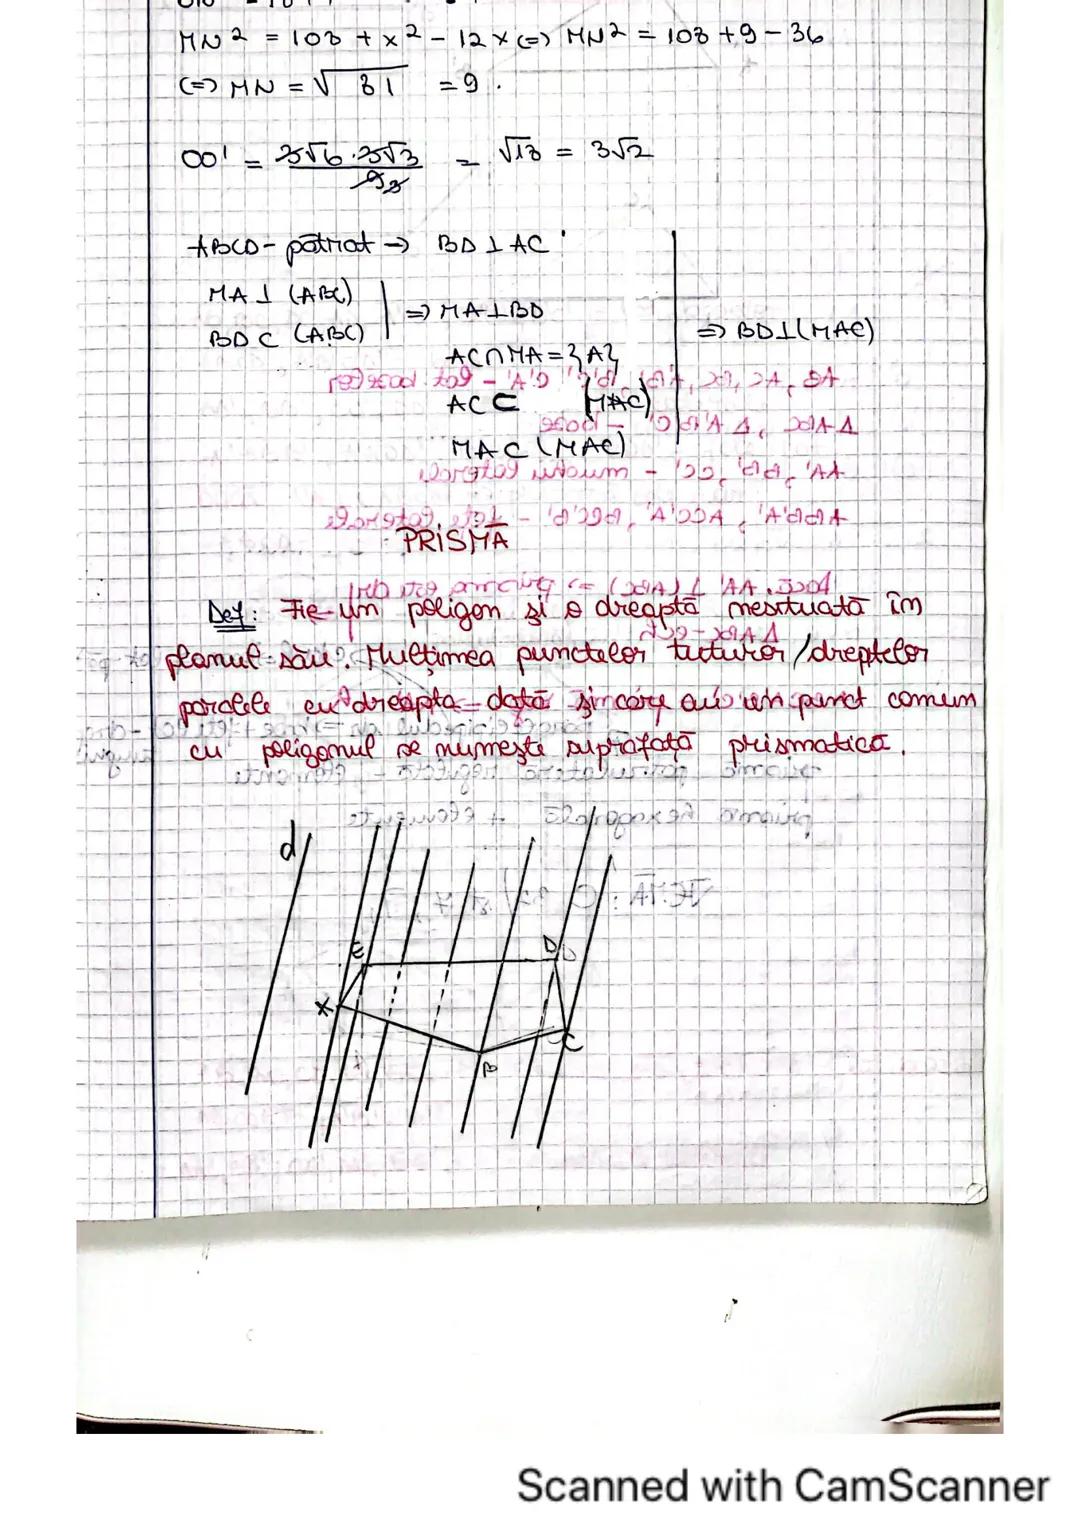 MN² = 108 + x² - 12x (=) MN² = 108 + 9 - 36
(=) MN = √81 = 9.
OO' = 3√6·3√3 / 9 = √18 = 3√2
ABCD - pătrat → BD ⊥ AC
MA ⊥ (ABC)
BD ⊂ (ABC)
⇒ MA ⊥ BD
AC ∩ MA = {A}
AC ⊂ (MAC)
MA ⊂ (MAC)
⇒ BD ⊥ (MAC)
PRISMA
Def: Fie un poligon și o dreaptă nesituată în
planul său. Mulțimea punctelor tuturor dreptelor
paralele cu dreapta dată și care au un punct comun
cu poligonul se numește suprafață prismatică.
d
E D
A
B C
Scanned with CamScanner